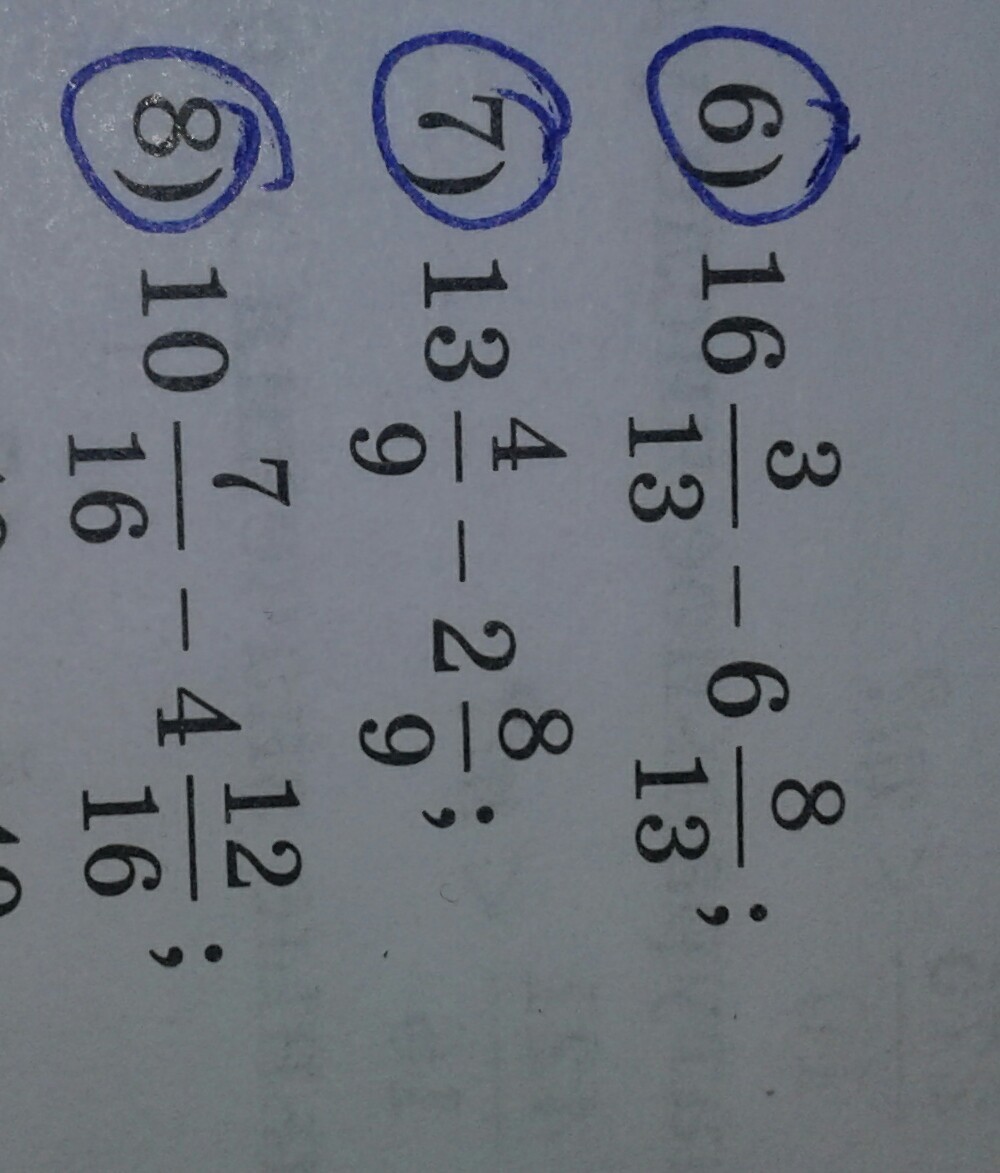 6) 16 3/13 − 6 8/13;
7) 13 4/9 − 2 8/9;
8) 10 7/16 − 4 12/16;